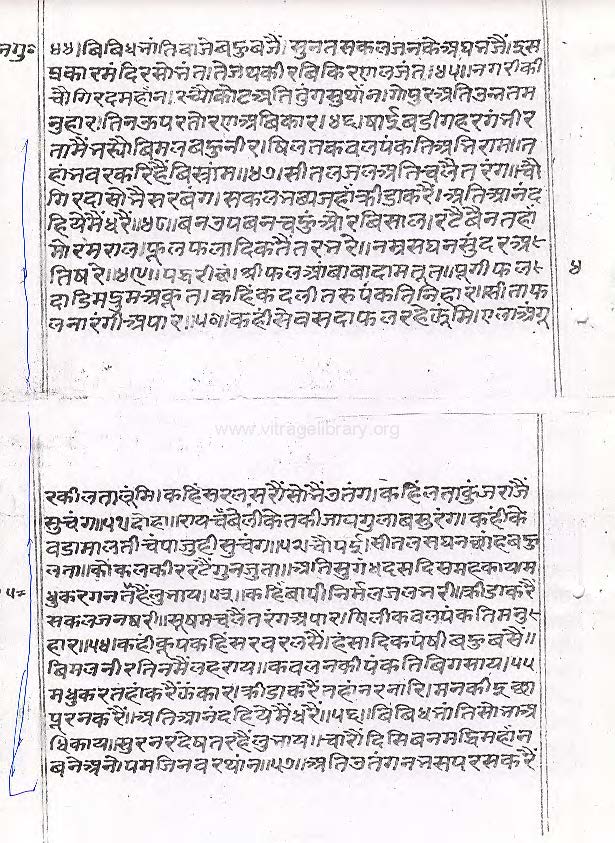 ४४।बिबिधभांतिबाजेबहुबजैं।सुनतसकलजनकेअघभजैं।इस
प्रकारमंदिरसोभंत।तेजथकीरबिकिरणलजंत।४५।नगरीकी
चौगिरदमहांन।रच्यौकोटअतितुंगसुथांन।गोपुरअतिउन्नतम
नुहार।तिनऊपरतोरणअबिकार।४६।षाईबडीगहरगंभीर
तामैंभस्योबिमलबहुनीर।षिलतकवलपंकतिअभिराम।त
हांभवरकरिहैंबिस्राम॥४७।सीतलजलअतिचलैतरंग।चौ
गिरदासोभैसरबंग।सकलभब्यजहांक्रीडाकरैं।अतिआनंद
हियेमैंधरैं॥४८॥बनउपबनचहुंओरबिसाल।रटैबैनतहां
मोरमराल।फूलफलादिकतैंतरभरे।नम्रसघनसुंदरअ
तिषरे॥४९॥पद्धरीछंद।श्रीफलआंबाबादामतूत।पुगीफल
दाडिमद्रुमअकूत।कहिंकदलीतरुपंकतिनिहार।सीताफ
लनारंगीअपार।५०।कहींसेवसदाफलरहेझूमि।एलाअंगू
४
www.vitragelibrary.org
रकीलतालूंमि।कहिंसरलसरौंसोभैंउतंग।कहिंलताकुंजराजैं
सुचंग॥५१दोहा॥रायचंबेलीकेतकीजायगुलाबसुरंग।कहींके
वडामालतीचंपाजुहीसुचंग॥५२चौपई।सीतलसघनछांहबहु
लता।कोकलकीररटैंगुनजुता॥अतिसुगंधदसदिसमहकाय।म
धुकरगनतहैंलुभाय।५३॥कहिंबापीनिर्मलजलभरी।क्रीडाकरैं
सकलजनषरी।सूषमचलैंतरंगअपार।षिलीकवलपंकतिमनु
हार॥५४॥कहींकूपकहिंसरवरलसैं।हंसादिकपंषीबहुबसैं॥
बिमलनीरतिनमैंलहराय।कवलनकीपंकतिबिगसाय।५५
मधुकरतहांकरैंझंकार।क्रीडाकरैंतहांनरनारि।मनकीइछा
पूरनकरैं।अतिआनंदहियेमैंधरैं।५६॥बिबिधभांतिसोभाअ
धिकाय।सुरनरदेषतरहैंलुभाय॥चारौंदिसिबनमद्धिमहांन
बनेअनोपमजिनवरथांन॥५७॥अतिउतंगनभसपरसकरैं